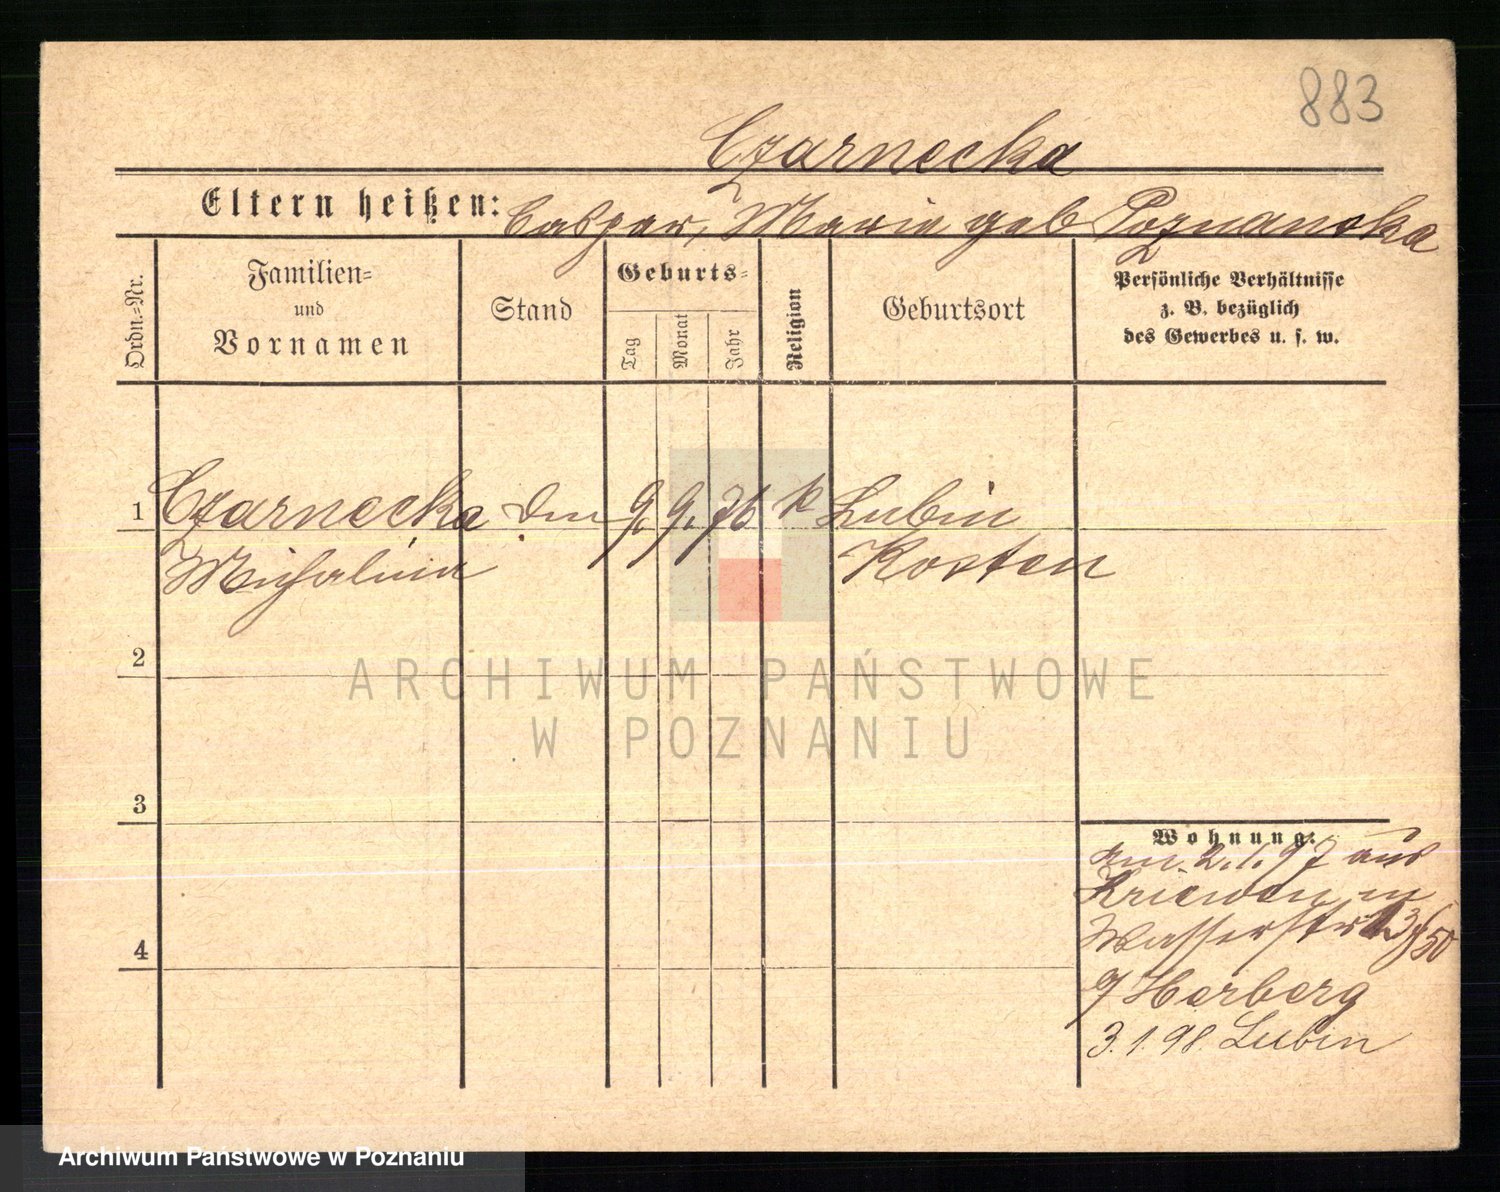 883
Czarnecka
Eltern heißen: Caspar, Marie geb Poznanska
Ordn.=Nr.
Familien=
und
Vornamen
Stand
Geburts=
Tag
Monat
Jahr
Religion
Geburtsort
Persönliche Verhältnisse
z. B. bezüglich
des Gewerbes u. s. w.
1 Czarnecka 9. 9. 76 k Lubin
Michalina Kosten
2
ARCHIWUM PAŃSTWOWE
W POZNANIU
3
4
Wohnung:
am 2.1.97 aus
Kriewen in
Wasserstr
Herberg
3.1.98. Lubin
Archiwum Państwowe w Poznaniu